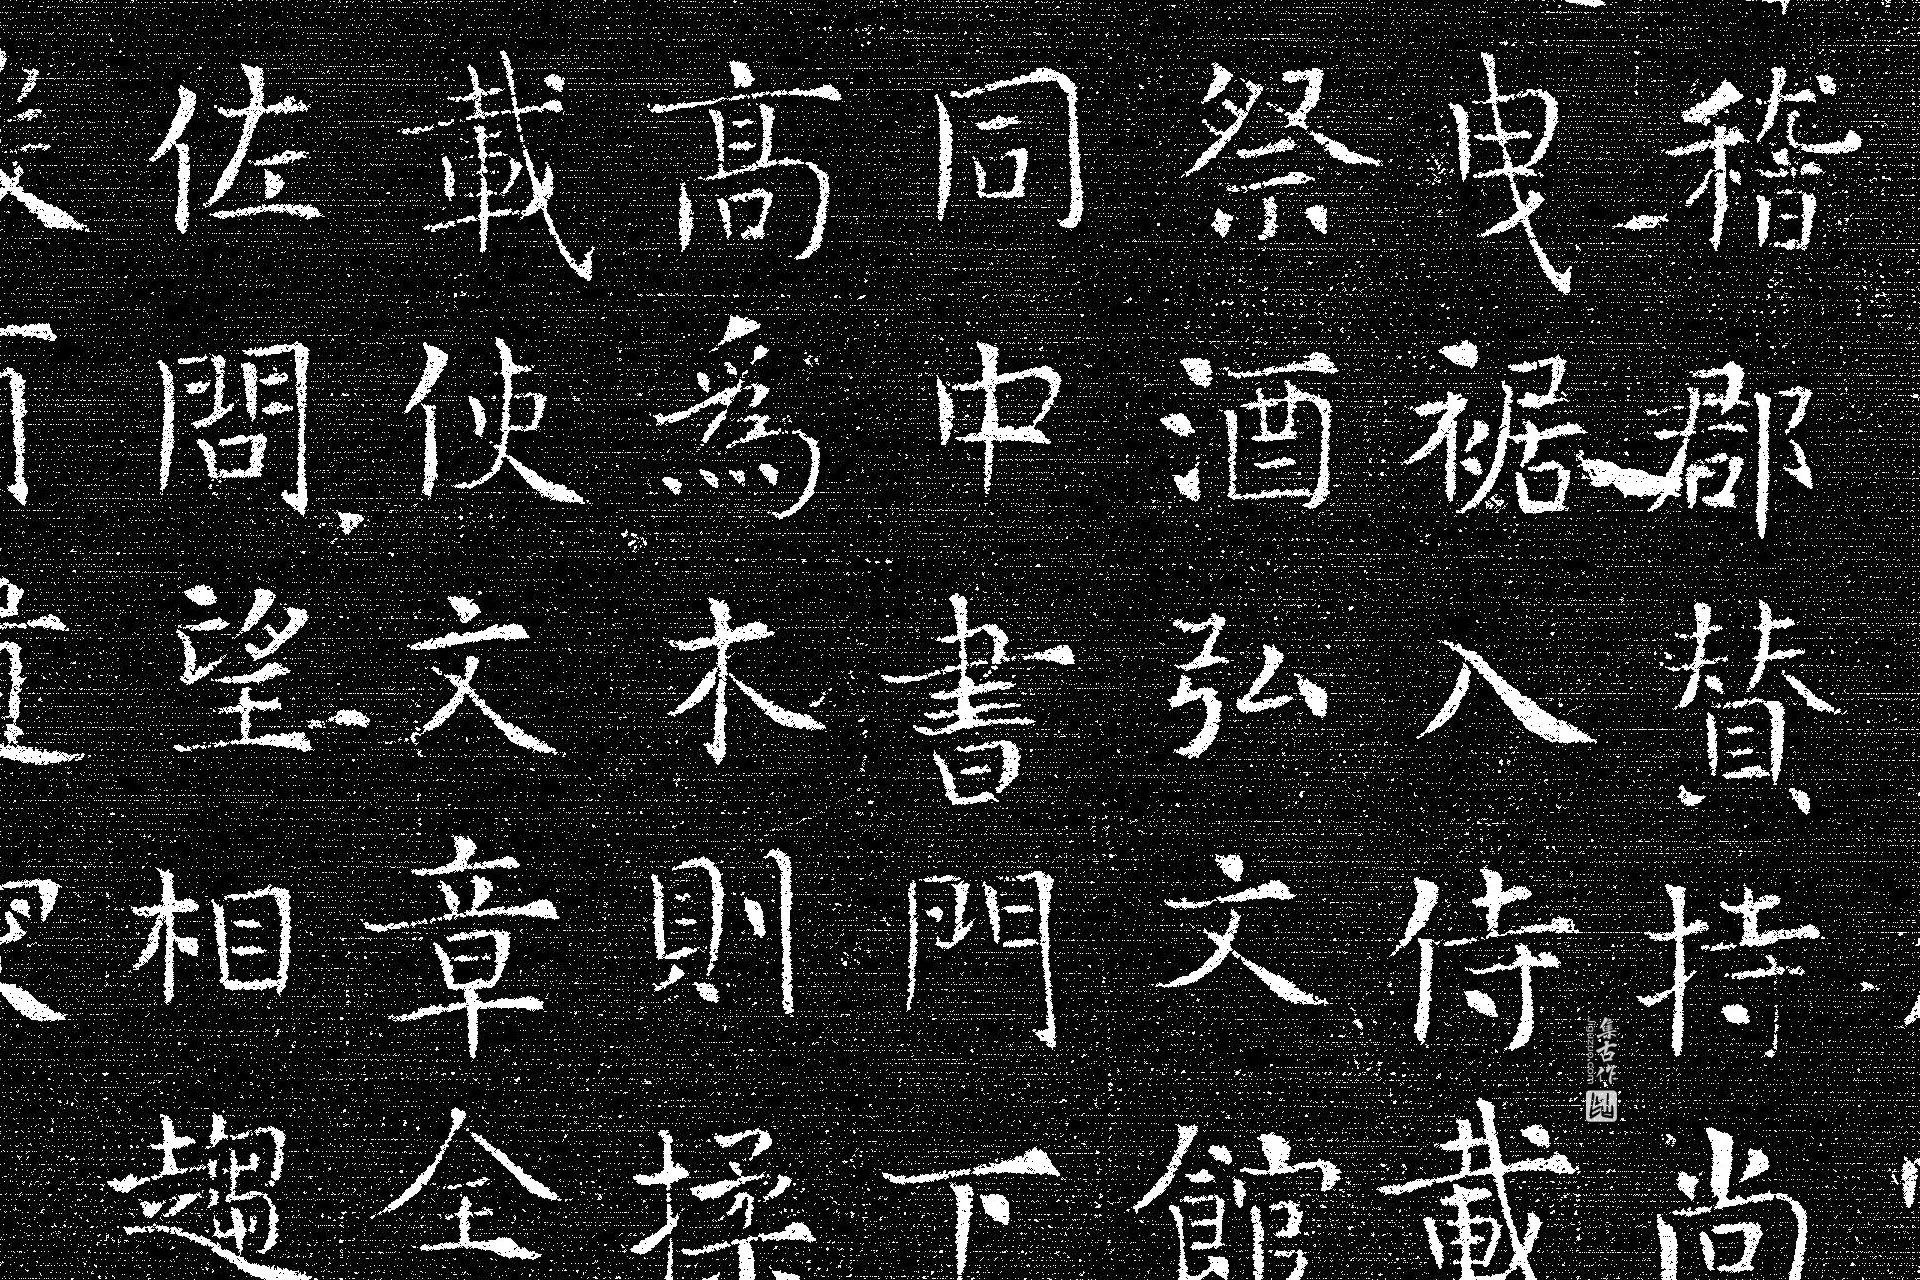 稽郡贊持尚
曳裾入侍載
祭酒弘文館
同中書門下
高為木則揉
載使文章全
佐問望相趨
集古作